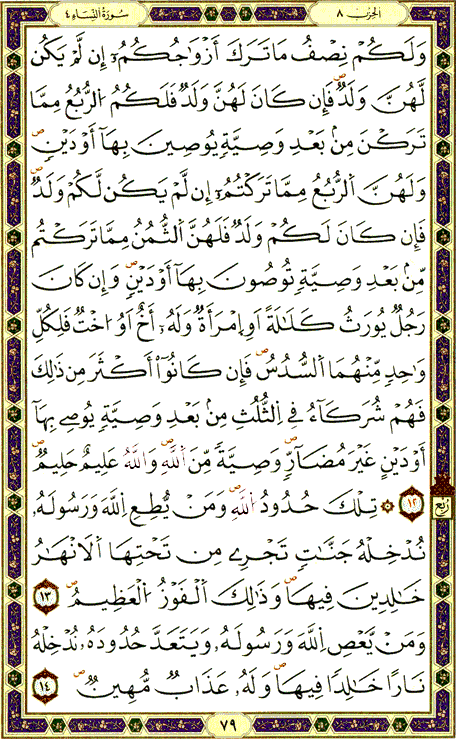 الحِزْبُ ٨ سُورَةُ النِّسَاءِ ٤
وَلَكُمْ نِصْفُ مَا تَرَكَ أَزْوَٰجُكُمُۥٓ إِن لَّمْ يَكُن
لَّهُنَّ وَلَدٌ ص فَإِن كَانَ لَهُنَّ وَلَدٌ فَلَكُمُ اُ۬لرُّبُعُ مِمَّا
تَرَكْنَ مِنۢ بَعْدِ وَصِيَّةٖ يُوصِينَ بِهَآ أَوْ دَيْنٖ ص
وَلَهُنَّ اَ۬لرُّبُعُ مِمَّا تَرَكْتُمُۥٓ إِن لَّمْ يَكُن لَّكُمْ وَلَدٌ ص
فَإِن كَانَ لَكُمْ وَلَدٌ فَلَهُنَّ اَ۬لثُّمُنُ مِمَّا تَرَكْتُم
مِّنۢ بَعْدِ وَصِيَّةٖ تُوصُونَ بِهَآ أَوْ دَيْنٖ ص وَإِن كَانَ
رَجُلٌ يُورَثُ كَلَٰلَةً اَوِ اِ۪مْرَأَةٌ وَلَهُۥٓ أَخٌ اَوُ ا۟خْتٌ فَلِكُلِّ
وَٰحِدٖ مِّنْهُمَا اَ۬لسُّدُسُ ص فَإِن كَانُوٓاْ أَكْثَرَ مِن ذَٰلِكَ
فَهُمْ شُرَكَآءُ فِے اِ۬لثُّلُثِ مِنۢ بَعْدِ وَصِيَّةٖ يُوصِے بِهَآ
أَوْ دَيْنٍ غَيْرَ مُضَآرّٖ ص وَصِيَّةٗ مِّنَ اَ۬للَّهِ ص وَاللَّهُ عَلِيمٌ حَلِيمٌ ص
١٢ ۞ تِلْكَ حُدُودُ اُ۬للَّهِ ص وَمَنْ يُّطِعِ اِ۬للَّهَ وَرَسُولَهُۥ
نُدْخِلْهُ جَنَّٰتٖ تَجْرِے مِن تَحْتِهَا اَ۬لَانْهَٰرُ
خَٰلِدِينَ فِيهَا ص وَذَٰلِكَ اَ۬لْفَوْزُ اُ۬لْعَظِيمُ ص ١٣
وَمَنْ يَّعْصِ اِ۬للَّهَ وَرَسُولَهُۥ وَيَتَعَدَّ حُدُودَهُۥ نُدْخِلْهُ
نَارًا خَٰلِدٗا فِيهَا ص وَلَهُۥ عَذَابٌ مُّهِينٌ ص ١٤
ربع
٧٩